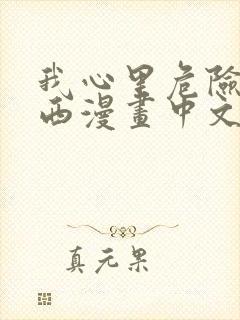 我心里危險
西漫畫中文
真元果